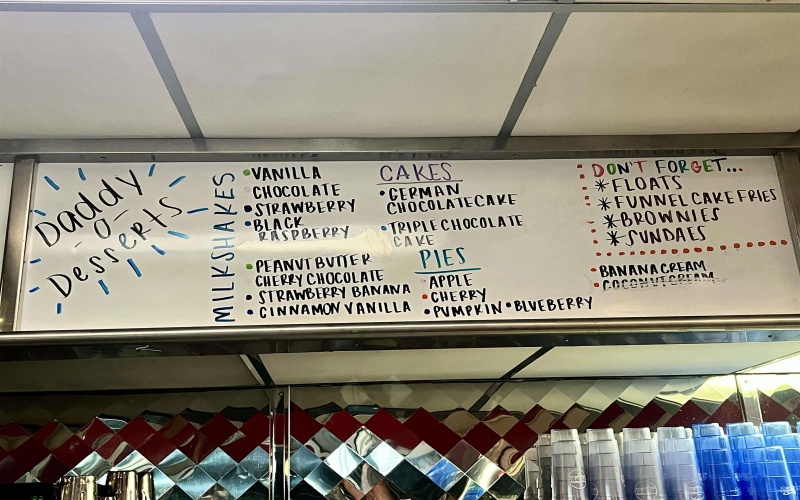 Daddy
-O-
Desserts
MILKSHAKES
• VANILLA
• CHOCOLATE
• STRAWBERRY
• BLACK
RASPBERRY
• PEANUT BUTTER
CHERRY CHOCOLATE
• STRAWBERRY BANANA
• CINNAMON VANILLA
CAKES
• GERMAN
CHOCOLATE CAKE
• TRIPLE CHOCOLATE
CAKE
PIES
• APPLE
• CHERRY
• PUMPKIN • BLUEBERRY
DON'T FORGET...
* FLOATS
* FUNNEL CAKE FRIES
* BROWNIES
* SUNDAES
• BANANA CREAM
• COCONUT CREAM